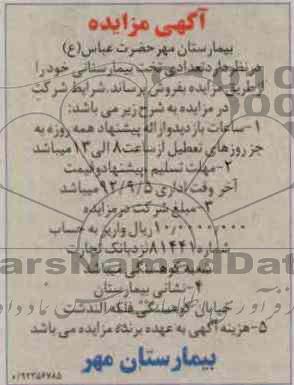 آگهی مزایده
بیمارستان مهر حضرت عباس(ع)
درنظر دارد تعدادی تخت بیمارستانی خود را
از طریق مزایده بفروش برساند. شرایط شرکت
در مزایده به شرح زیر می باشد:
۱-ساعات بازدید وارائه پیشنهاد همه روزه به
جز روزهای تعطیل از ساعت ۸ الی ۱۳ میباشد
۲-مهلت تسلیم پیشنهاد وقیمت
آخر وقت اداری ۹۲/۹/۵ میباشد
۳-مبلغ شرکت در مزایده
۱۰/۰۰۰/۰۰۰ ریال واریز به حساب
شماره ۸۱۴۴۱ نزد بانک تجارت
شعبه کوهسنگی میباشد
۴-نشانی بیمارستان
خیابان کوهسنگی فلکه الندشت
۵-هزینه آگهی به عهده برنده مزایده می باشد
بیمارستان مهر
۰/۹۲۳۵۶۷۸۵